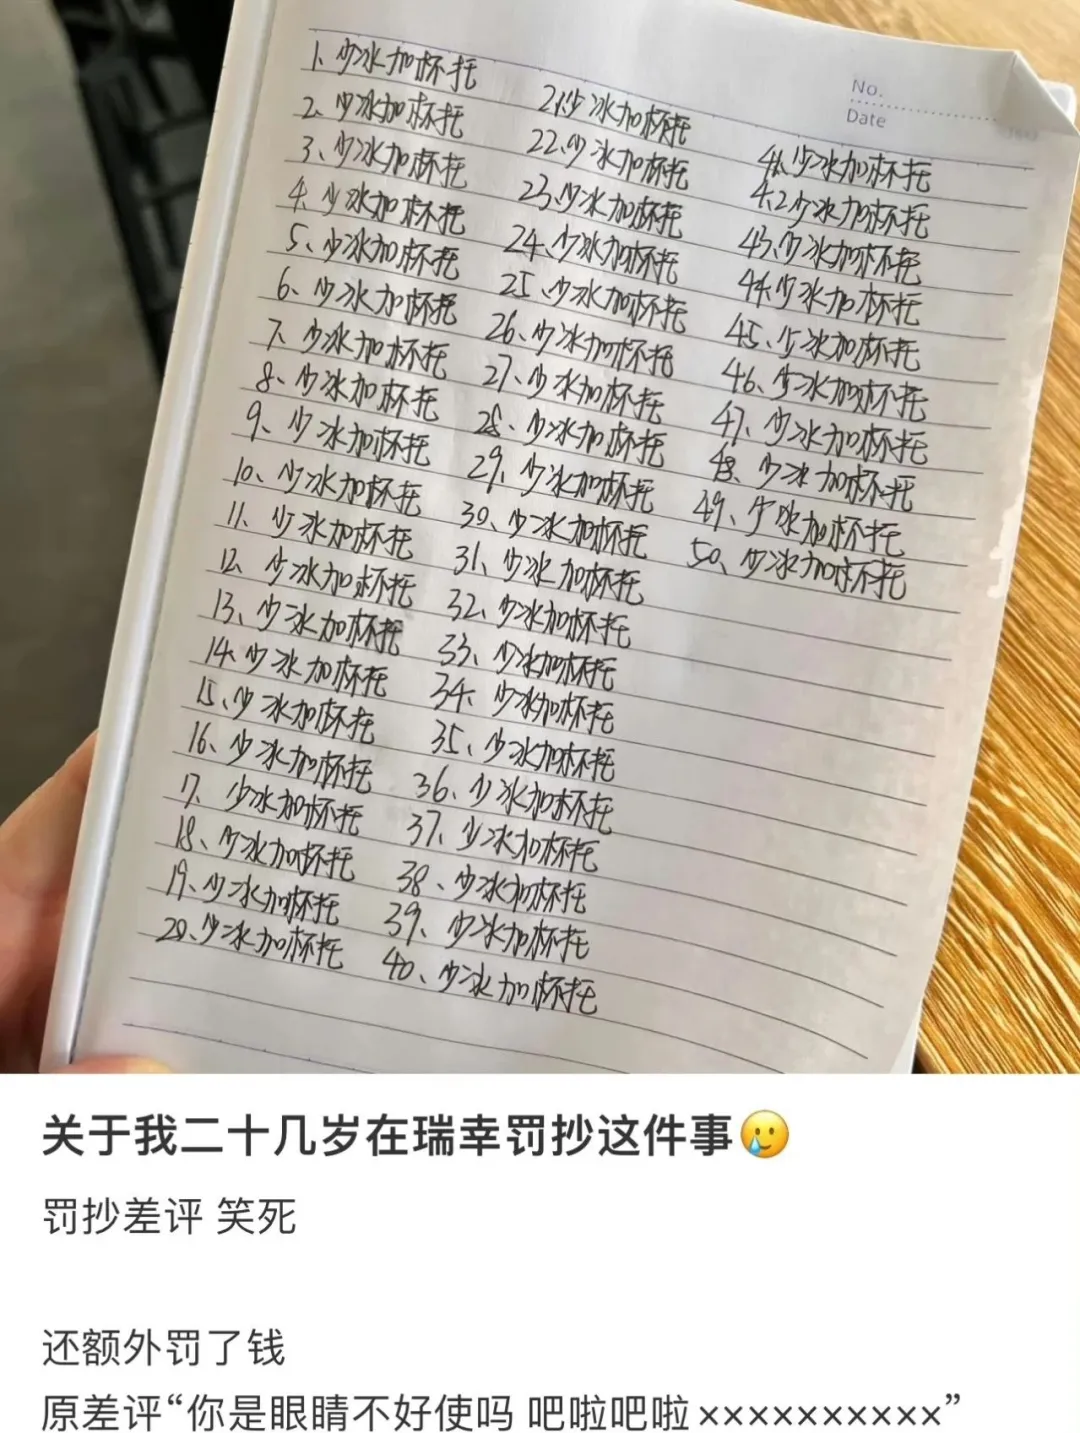 No.
Date
1、少冰加杯托
2、少冰加杯托
3、少冰加杯托
4、少冰加杯托
5、少冰加杯托
6、少冰加杯托
7、少冰加杯托
8、少冰加杯托
9、少冰加杯托
10、少冰加杯托
11、少冰加杯托
12、少冰加杯托
13、少冰加杯托
14、少冰加杯托
15、少冰加杯托
16、少冰加杯托
17、少冰加杯托
18、少冰加杯托
19、少冰加杯托
20、少冰加杯托
21、少冰加杯托
22、少冰加杯托
23、少冰加杯托
24、少冰加杯托
25、少冰加杯托
26、少冰加杯托
27、少冰加杯托
28、少冰加杯托
29、少冰加杯托
30、少冰加杯托
31、少冰加杯托
32、少冰加杯托
33、少冰加杯托
34、少冰加杯托
35、少冰加杯托
36、少冰加杯托
37、少冰加杯托
38、少冰加杯托
39、少冰加杯托
40、少冰加杯托
41、少冰加杯托
42少冰加杯托
43、少冰加杯托
44、少冰加杯托
45、少冰加杯托
46、少冰加杯托
47、少冰加杯托
48、少冰加杯托
49、少冰加杯托
50、少冰加杯托
关于我二十几岁在瑞幸罚抄这件事🥲
罚抄差评 笑死
还额外罚了钱
原差评“你是眼睛不好使吗 吧啦吧啦××××××××××”